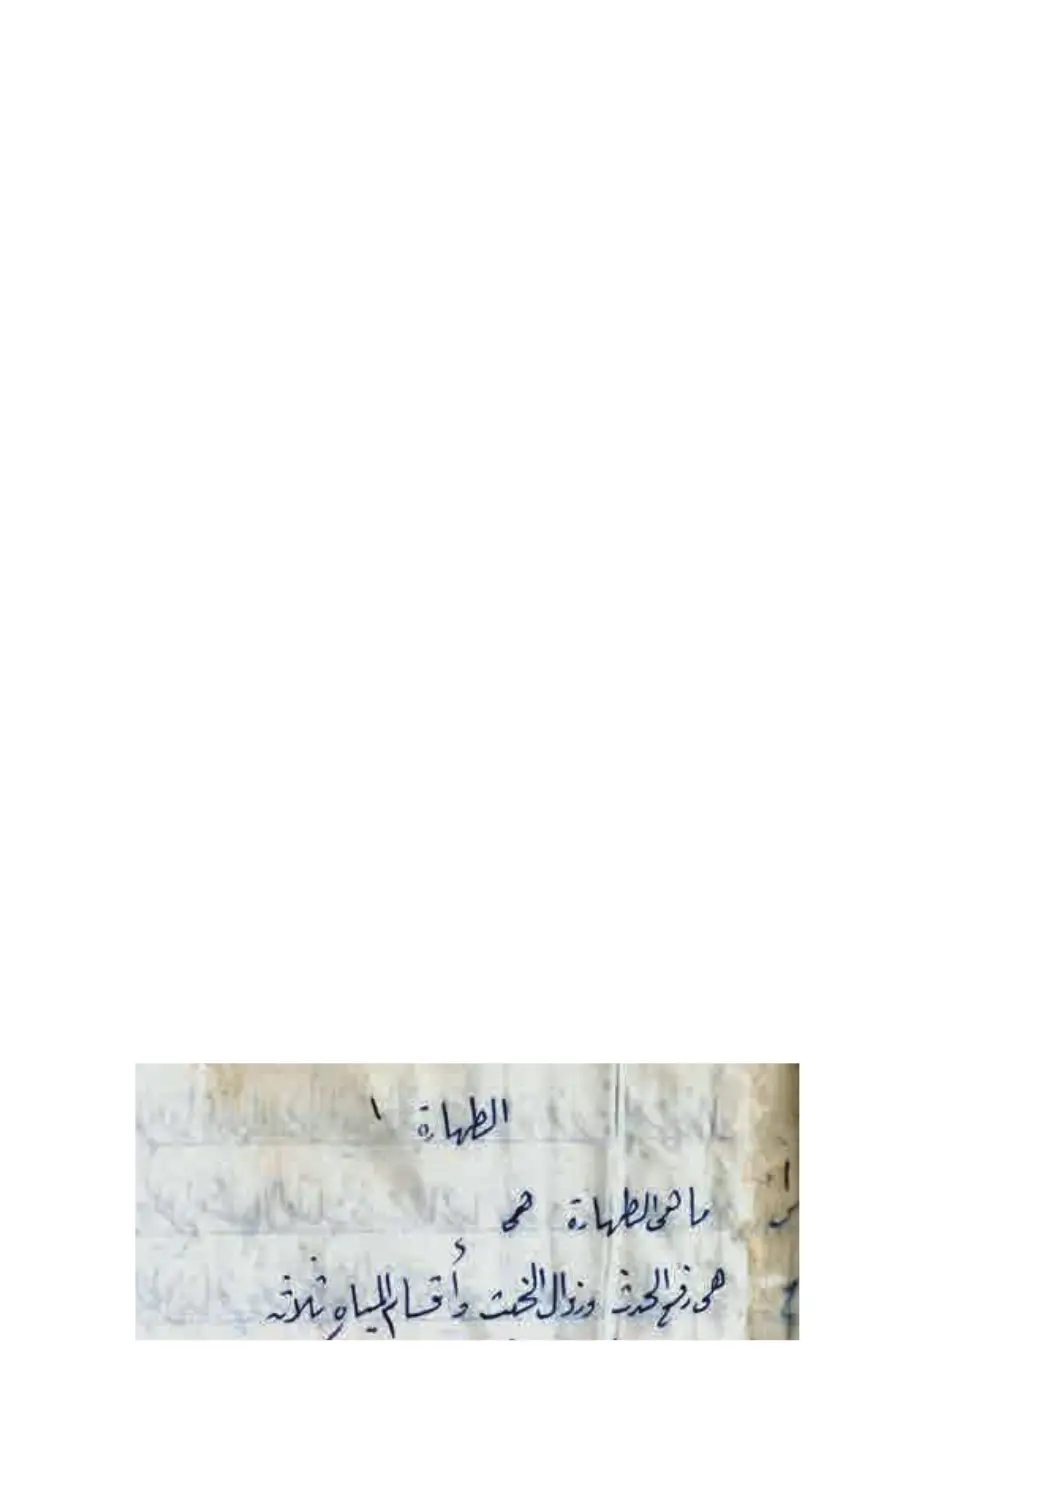 الطهارة ١
س١ ما هى الطهارة هى
ج هى رفع الحدث وزوال الخبث وأقسام المياه ثلاثه